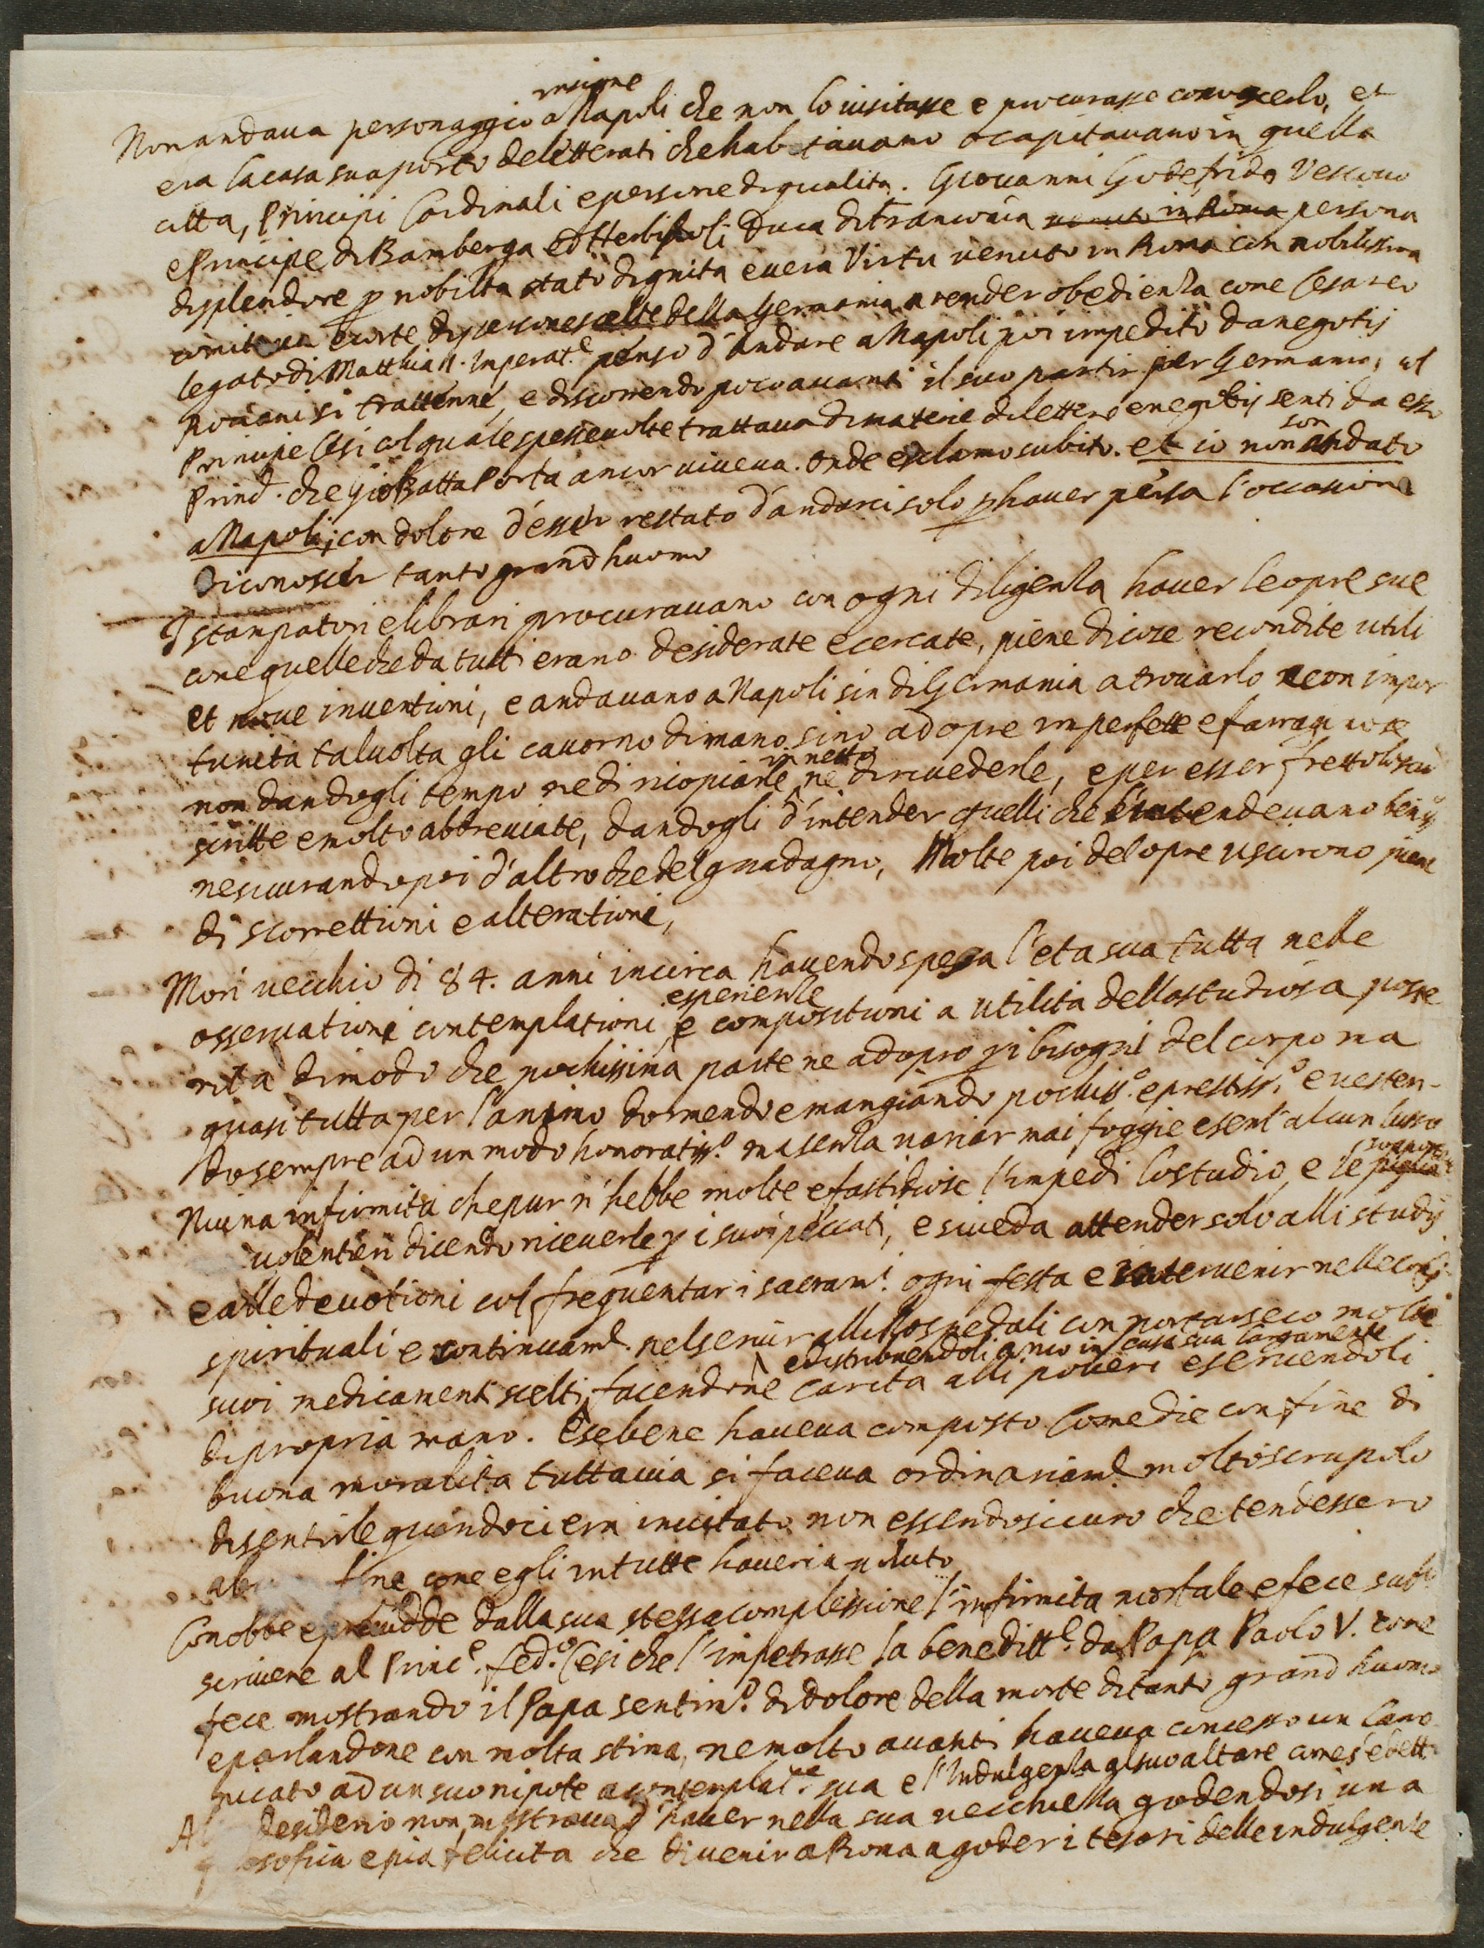 insigne
Non andava personaggio a Napoli che non lo visitasse e procurasse conoscerlo, et
era la casa sua porto de letterati che habitavano o capitavano in quella
citta, Principi Cardinali e persone di qualita. Giovanni Godefrido Vescovo
e Principe di Bamberga ed Herbipoli Duca di Franconia venuto in Roma persona
di splendore p nobilta stato dignita e vera Virtu venuto in Roma con nobilissima
comitiva e corte di persone scelte della Germania a render obedienza come Cesareo
legato di Matthia II. Imperat.e penso d'andare a Napoli poi impedito da negotij
Romani si trattenne, e discorrendo poco avanti il suo partir per Germania, al
Principe Cesi col quale spesse volte trattava di materie di lettere e negotij senti da esso
son
Princ. che Gio Batta Porta ancor viveva. Onde esclamo subito. et io non andato
a Napoli, con dolore d'esser restato d'andarci solo p haver persa l'occasione
di conoscer tanto grand huomo
I stampatori e librari procuravano con ogni diligenza haver le opre sue
come quelle che da tutti erano desiderate e cercate, piene di cose recondite utili
et nove inventioni, e andavano a Napoli sin di Germania a trovarlo e con impor
tunita talvolta gli cavorno di mano sino ad opre imperfette e farraginose
in netto
non dandogli tempo ne di ricopiarle ne di rivederle, e per esser frettolosam
scritte e molto abbreviate, dandogli d'intender quelli che l'intendevano beniss
ne curando poi d'altro che del guadagno, Molte poi del opre uscirono piene
di scorrettioni e alterationi,
Mori vecchio di 84. anni incirca havendo spesa l'eta sua tutta nelle
esperienze
osservationi contemplationi e compositioni a utilita della studiosa poste
rita di modo che pochissima parte ne adopro p i bisogni del corpo ma
quasi tutta per l'animo dormendo e mangiando pochiss.o e prestiss.o e vesten-
do sempre ad un modo honoratiss.o ma senza variar mai foggie e senz'alcun lusso
Niuna infirmita che pur n'hebbe molte e fastidiose l'impedi lo studio, e le
volentieri dicendo riceverle p i suoi peccati, e si veda attender solo alli studij
e alle devotioni col frequentar i sacram.i ogni festa e intervenir nelle
spirituali e continuam.e nel servir alli Hospedali con portar seco molti
e distribuendoli anco in casa sua largamente
suoi medicamenti scelti, facendone carita alli poveri e servendoli
di propria mano. E se bene haveva composto Comedie con fine di
buona moralita tuttavia si faceva ordinariam.e molto scrupolo
di sentirle quando ci era invitato non essendo sicuro che tendessero
fine come egli in tutte haveria voluto
Conobbe e previdde dalla sua stessa complessione l'infirmita mortale e fece subito
scrivere al Princ.e Fed.o Cesi che l'impetrasse la beneditt.e da Papa Paolo V. come
fece mostrando il Papa sentim.o di dolore della morte di tanto grand huomo
e parlandone con molta stima, ne molto avanti haveva concesso un Cano
nicato ad un suo nipote a contemplat.e sua e l'Indulgenza al suo altare come s'e detto
desiderio non mostrava d'haver nella sua vecchiezza godendosi una
e pia felicita che di venir a Roma a goder i tesori delle indulgenze